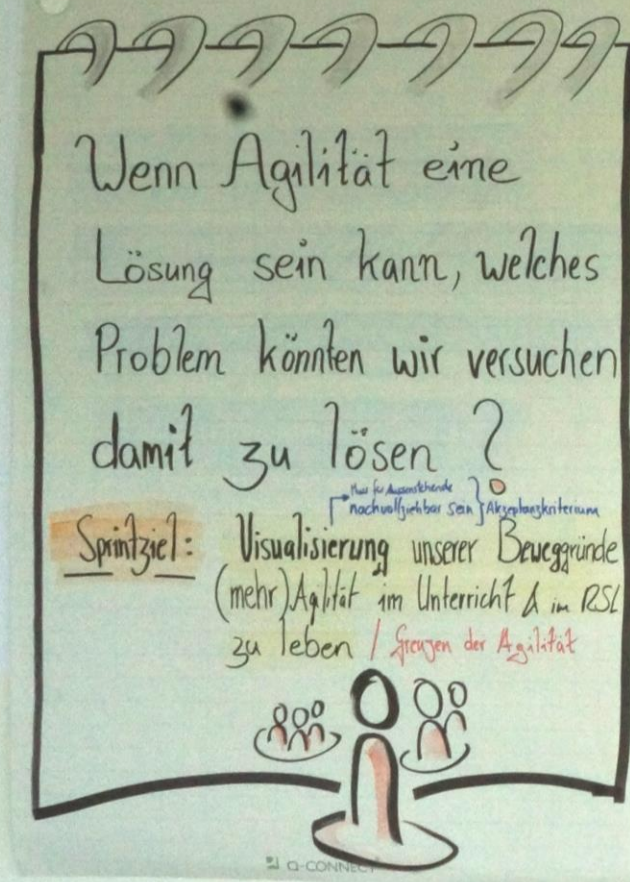 Wenn Agilität eine
Lösung sein kann, welches
Problem könnten wir versuchen
damit zu lösen?
Muss für Aussenstehende
nachvollziehbar sein } Akzeptanzkriterium
Sprintziel: Visualisierung unserer Beweggründe
(mehr) Agilität im Unterricht & im RSL
zu leben / Grenzen der Agilität
Q-CONNECT